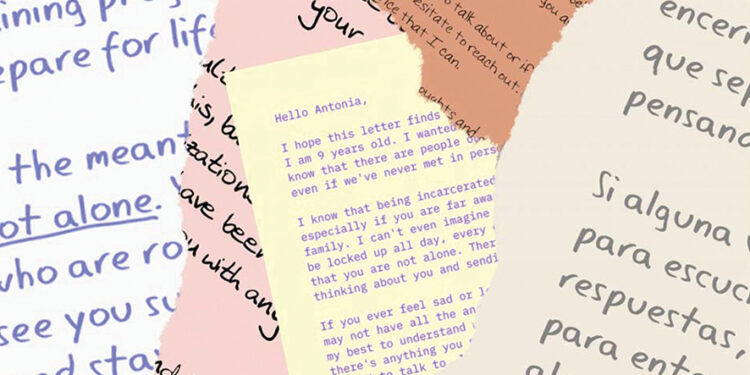 ining pro
epare for life
the meant
ot alone.
who are ro
see you su
nd sta
your
is, bu
zation
ave been
u with any
Hello Antonia,
I hope this letter finds
I am 9 years old. I wanted
know that there are people
even if we've never met in pers
I know that being incarcerated
especially if you are far awa
family. I can't even imagine
be locked up all day, every
that you are not alone. Ther
thinking about you and sendi
If you ever feel sad or l
may not have all the an
my best to understand
there's anything you
to talk to
to talk about or if
esitate to reach out.
ice that I can.
oughts and
you a
encerr
que sep
pensand
Si alguna
para escuc
respuestas,
para ente